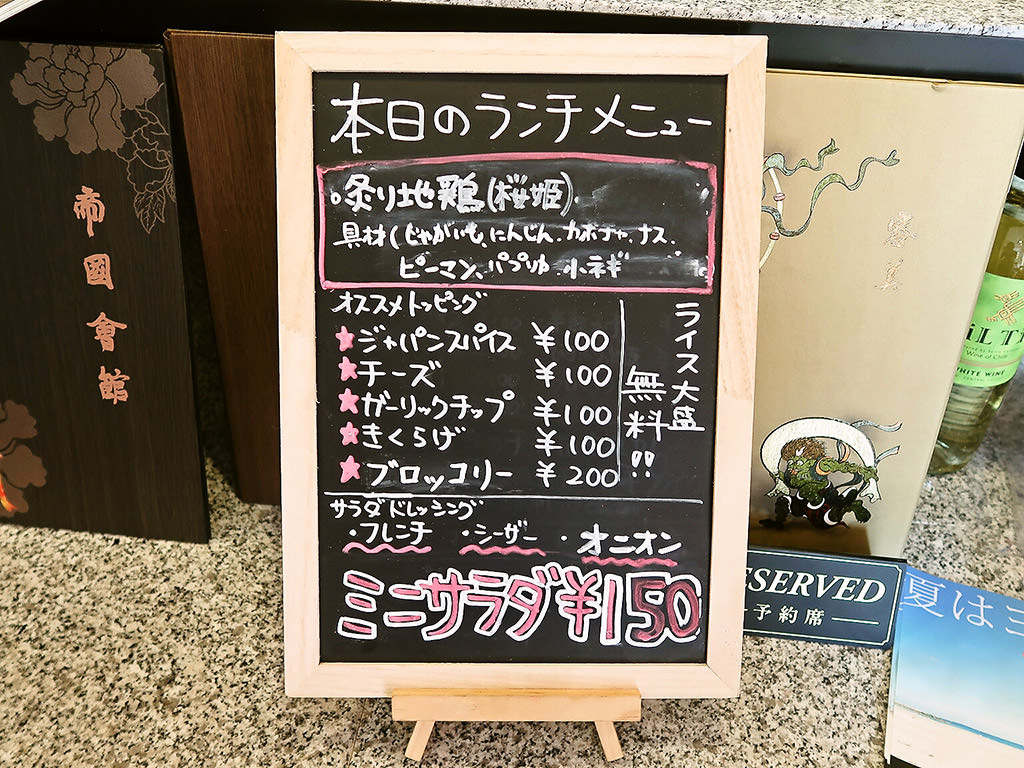 本日のランチメニュー
・炙り地鶏(桜姫)
具材(じゃがいも、にんじん、カボチャ、ナス、
ピーマン、パプリカ、小ネギ
オススメトッピング
★ジャパンスパイス ¥100
★チーズ ¥100
★ガーリックチップ ¥100
★きくらげ ¥100
★ブロッコリー ¥200
ライス大盛
無料!!
サラダドレッシング
・フレンチ ・シーザー ・オニオン
ミニサラダ¥150
帝國會館
ESERVED
予約席
夏は
WHITE WINE